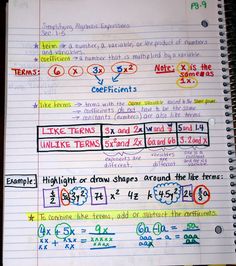 P3-9
Simplifying Algebraic Expressions
Sec. 1-5
★ term → a number, a variable, or the product of numbers
and variables.
★ coefficient → a number that is multiplied by a variable
TERMS: 6 x 3x 5x²
Note: x is the
same as
1x.
Coefficients
★ like terms → terms with the same variable raised to the same power
→ coefficients do not have to be the same
→ constants (numbers) are also like terms
LIKE TERMS 3x and 2x w and 5 and 1.4
UNLIKE TERMS 5x² and 2x 6a and 6b 3.2 and x
exponents are
different
variables
are
different
constant
variable
Example: Highlight or draw shapes around the like terms:
7t x² 4z k
★ To combine like terms, add or subtract the coefficients
4x + 5x = 9x
6a - a = 5a